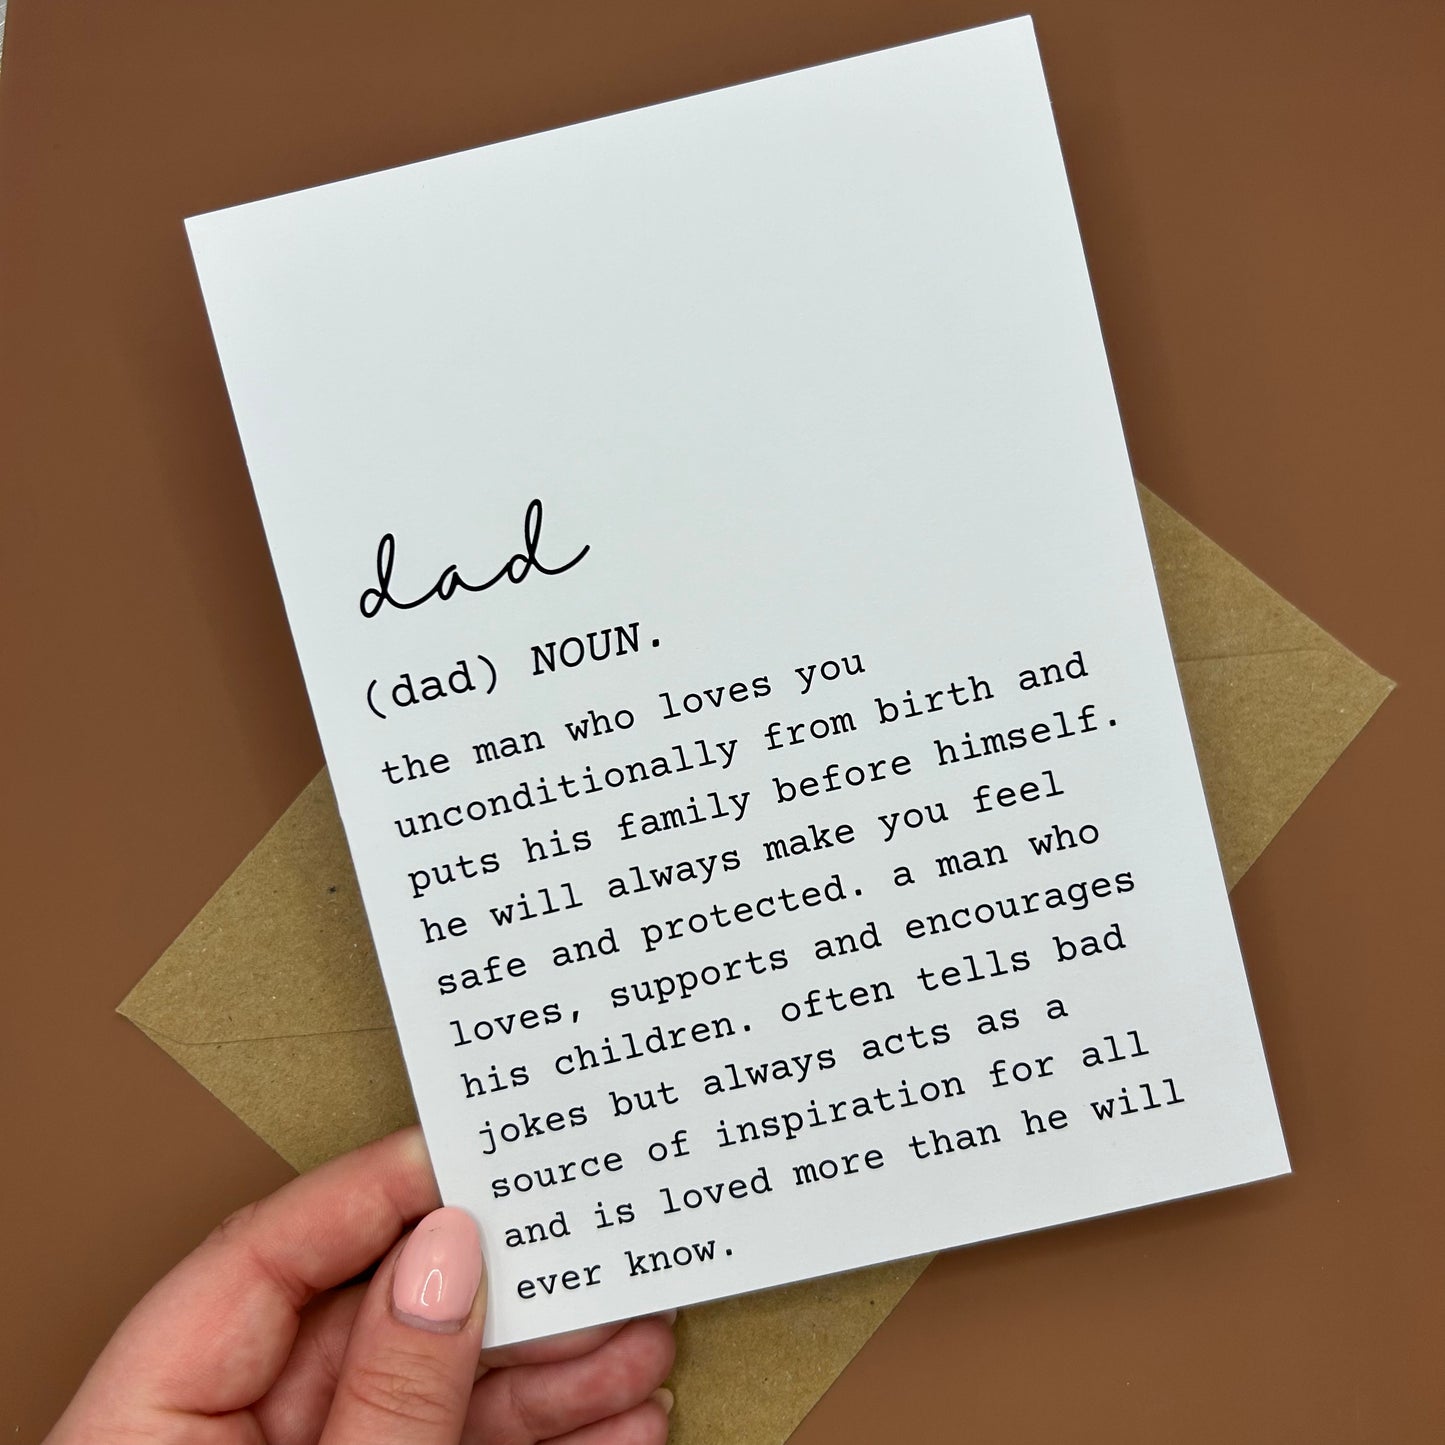 dad
(dad) NOUN.
the man who loves you
unconditionally from birth and
puts his family before himself.
he will always make you feel
safe and protected. a man who
loves, supports and encourages
his children. often tells bad
jokes but always acts as a
source of inspiration for all
and is loved more than he will
ever know.